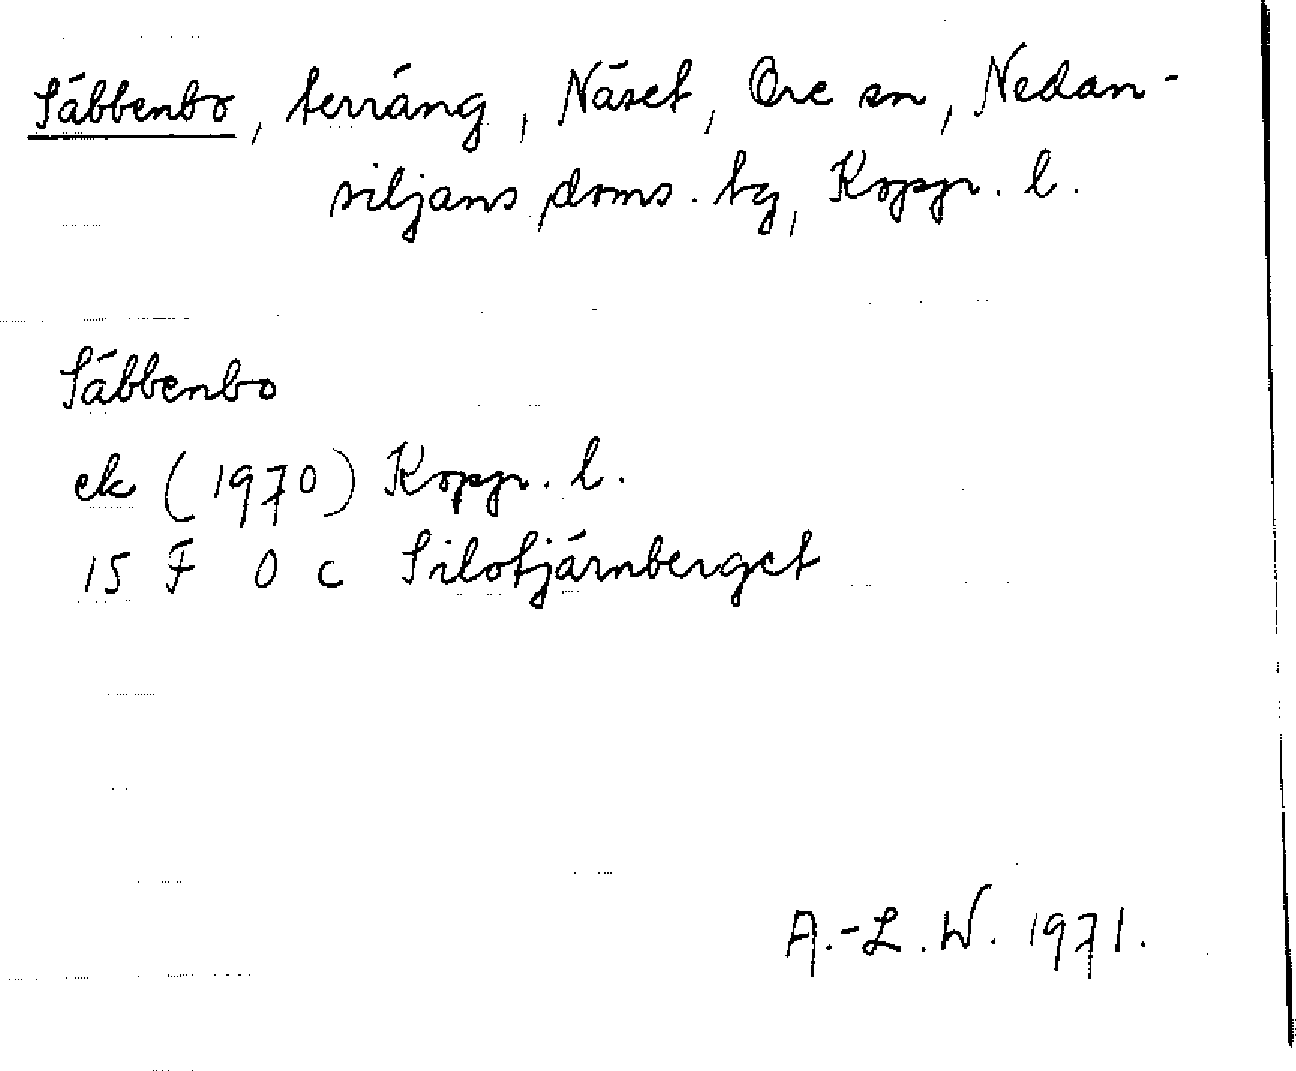 Säbbenbo, terräng, Näset, Ore sn, Nedan-
siljans doms. tg, Kopp. l.
Säbbenbo
ek (1970) Kopp. l.
15 F 0 c Silotjärnberget
A.-L.W. 1971.